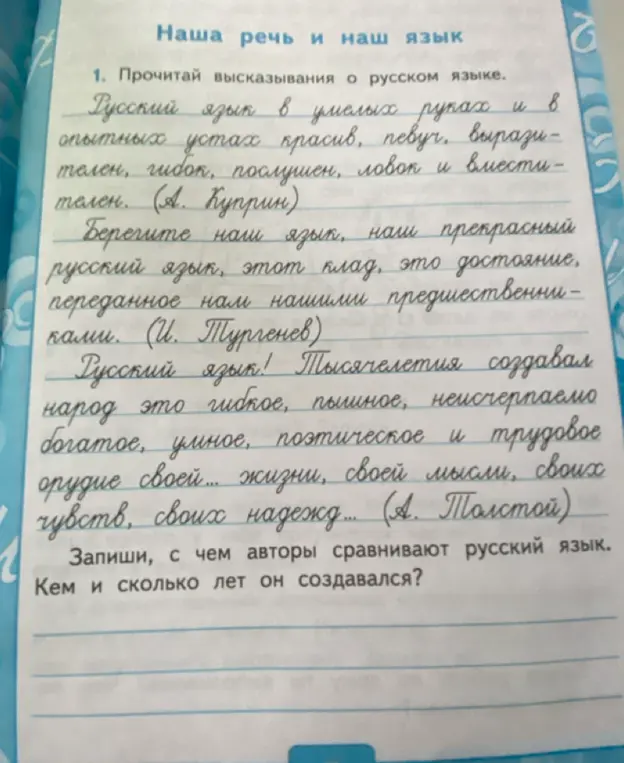 Наша речь и наш язык
1. Прочитай высказывания о русском языке.
Русский язык в умелых руках и в
опытных устах красив, певуч, вырази-
телен, гибок, послушен, ловок и вмести-
телен. (А. Куприн)
Берегите наш язык, наш прекрасный
русский язык, этот клад, это достояние,
переданное нам нашими предшественни-
ками. (И. Тургенев)
Русский язык! Тысячелетия создавал
народ это гибкое, пышное, неисчерпаемо
богатое, умное, поэтическое и трудовое
орудие своей... жизни, своей мысли, своих
чувств, своих надежд... (А. Толстой)
Запиши, с чем авторы сравнивают русский язык.
Кем и сколько лет он создавался?